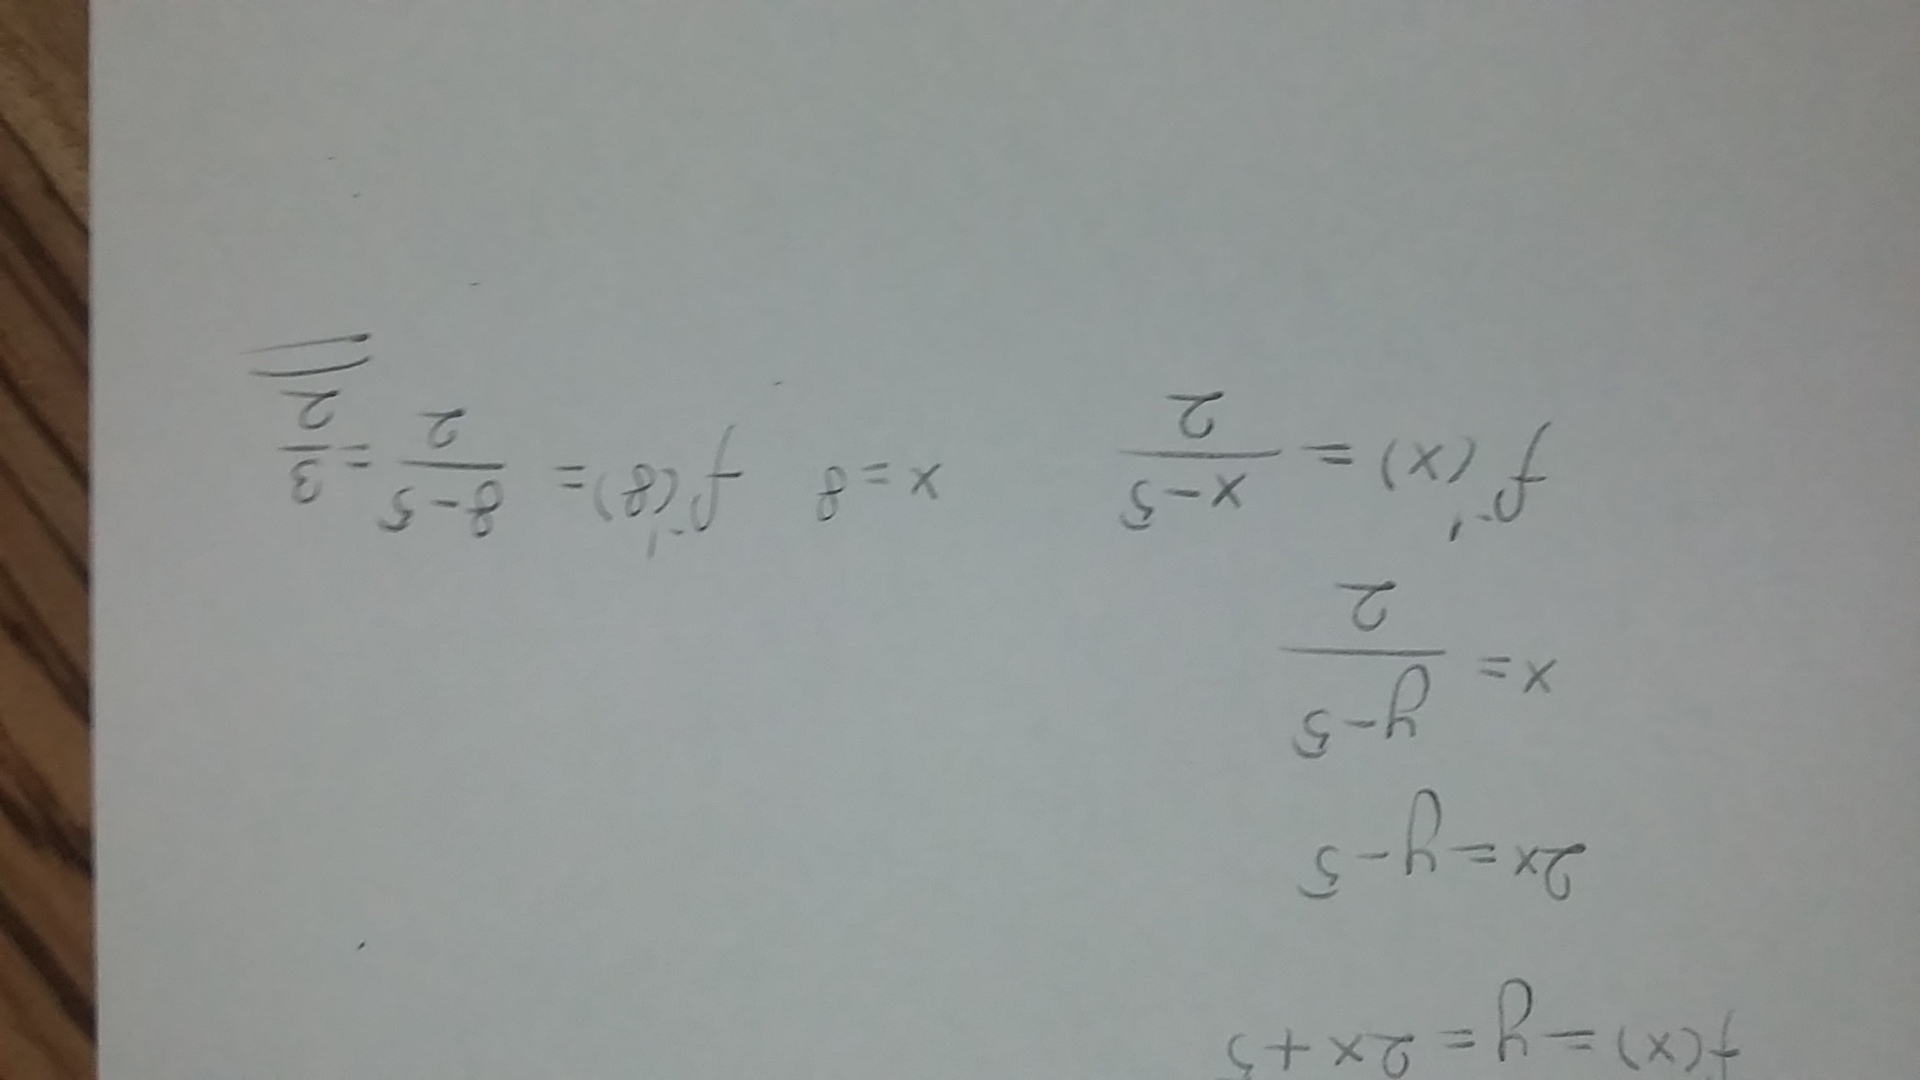 f(x) = y = 2x + 5
2x = y - 5
x = \frac{y-5}{2}
f^{-1}(x) = \frac{x-5}{2} x = 8 f^{-1}(8) = \frac{8-5}{2} = \frac{3}{2}